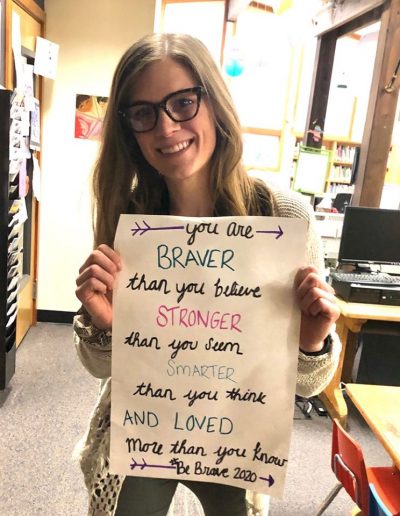 you are
BRAVER
than you believe
STRONGER
than you seem
SMARTER
than you think
AND LOVED
More than you know
#Be Brave 2020